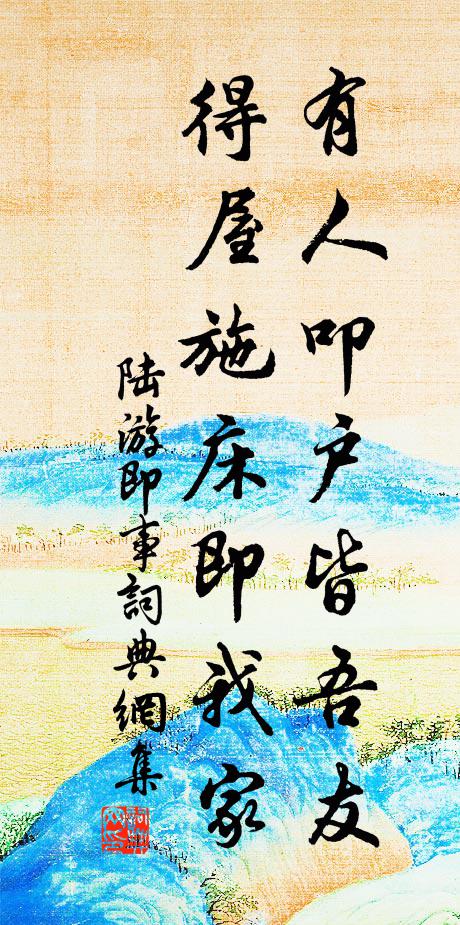 有人叩户皆吾友
得屋施床即我家
陆游即事詞典網集